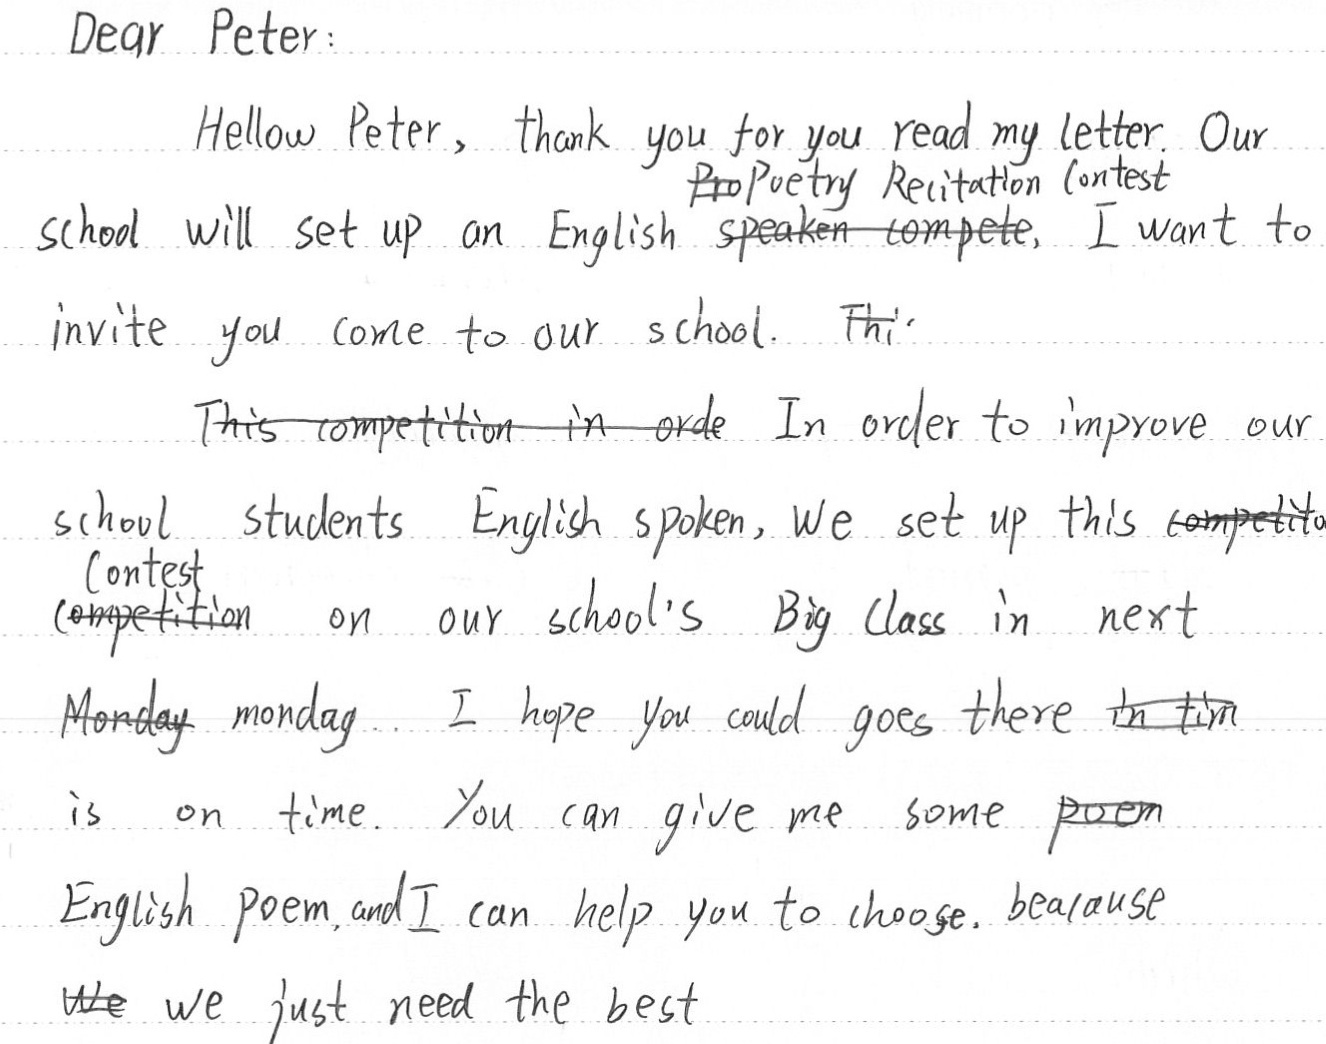 Dear Peter:
Hellow Peter, thank you for you read my letter. Our
Pro Poetry Recitation Contest
school will set up an English speaken compete. I want to
invite you come to our school. Thi
This competition in orde In order to improve our
school students English spoken, We set up this competito
Contest
competition on our school's Big Class in next
Monday monday. I hope you could goes there in tim
is on time. You can give me some poem
English poem, and I can help you to choose. beacause
We we just need the best